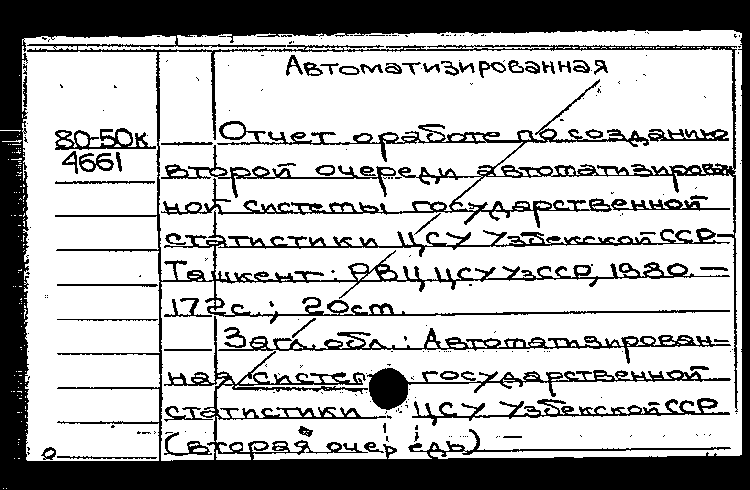 Автоматизированная
80-50к
4661
Отчет о работе по созданию
второй очереди автоматизирован
ной системы государственной
статистики ЦСУ Узбекской ССР.-
Ташкент: РВЦ ЦСУ УзССР, 1980. —
172с.; 20см.
Загл. обл.: Автоматизирован-
ная система государственной
статистики ЦСУ Узбекской ССР
(вторая очередь)